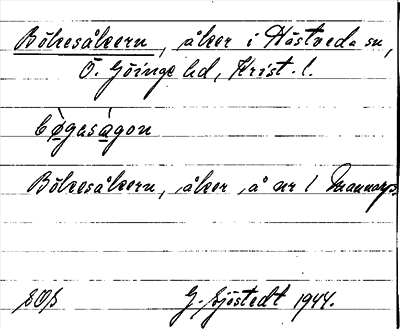 Bökesåkern, åker i Hästveda sn,
Ö. Göinge hd, Krist. l.
bǿgasågon
Bökesåkern, åker, å nr 1 Mannarp.
G. Sjöstedt 1944.